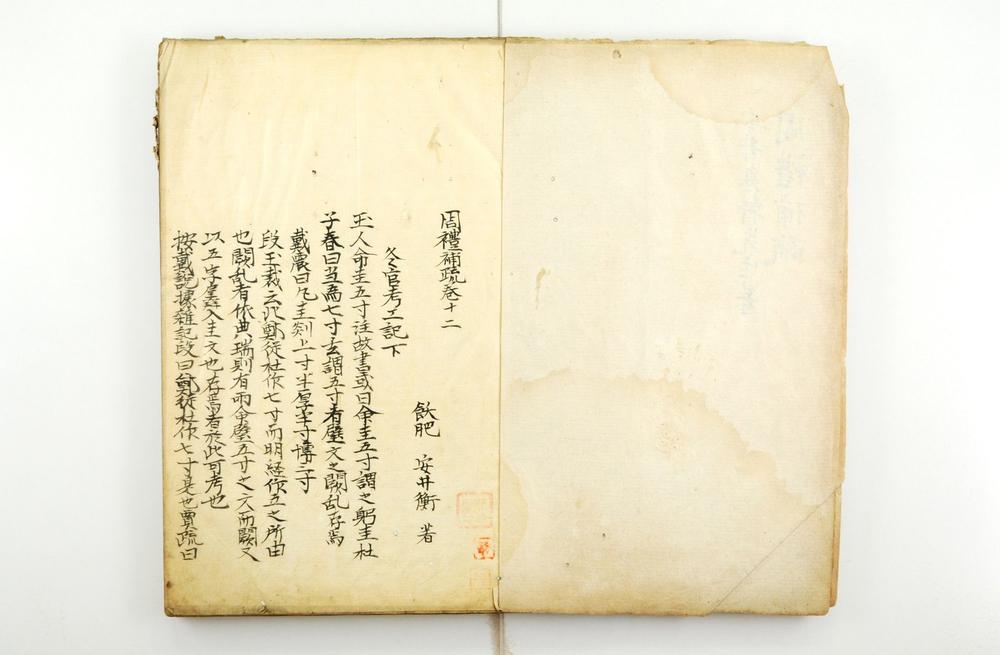 周禮補疏卷十二
飫肥 安井衡 著
冬官考工記下
玉人命圭五寸注故書或曰命圭五寸謂之躬圭杜
子春曰当爲七寸玄謂五寸者璧文之闕乱存焉
戴震曰凡圭剡上寸半厚半寸博三寸
段玉裁云此鄭從杜作七寸而明經作五之所由
也闕乱者依典瑞則有兩命璧五寸之文而闕又
以五字羼入圭文也存焉者於此可考也
按戴說據雜記段曰鄭從杜作七寸是也賈疏曰